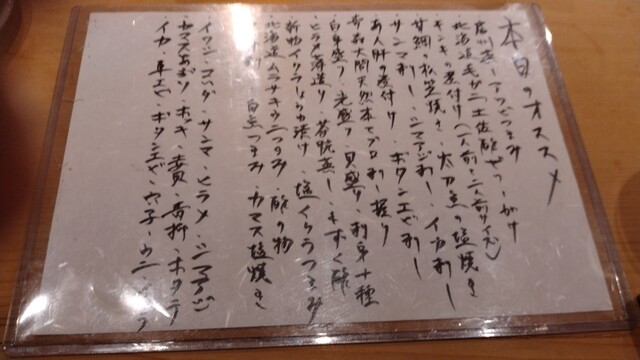 本日のオススメ
つまみ
北海道毛がに土佐酢ジュレがけ
キンキの煮付け(一人前~二人前サイズ)
甘鯛の松笠焼き・太刀魚の塩焼き
サンマ刺し・シマアジ刺し・イカ刺し
あん肝の煮付け・ボタンエビ刺し
青森大間天然本マグロ刺し・握り
白身盛り・光盛り・貝盛り・刺身十種
ヒラメ薄造り・茶碗蒸し・もずく酢
新物イクラしょうゆ漬け・塩イクラつまみ
北海道ムラサキウニつまみ・酢の物
白魚つまみ・カマス塩焼き
イワシ・コハダ・サンマ・ヒラメ・シマアジ
カマスあぶり・ホッキ・赤貝・青柳・ホタテ
イカ・車エビ・ボタンエビ・穴子・ウニ・イクラ